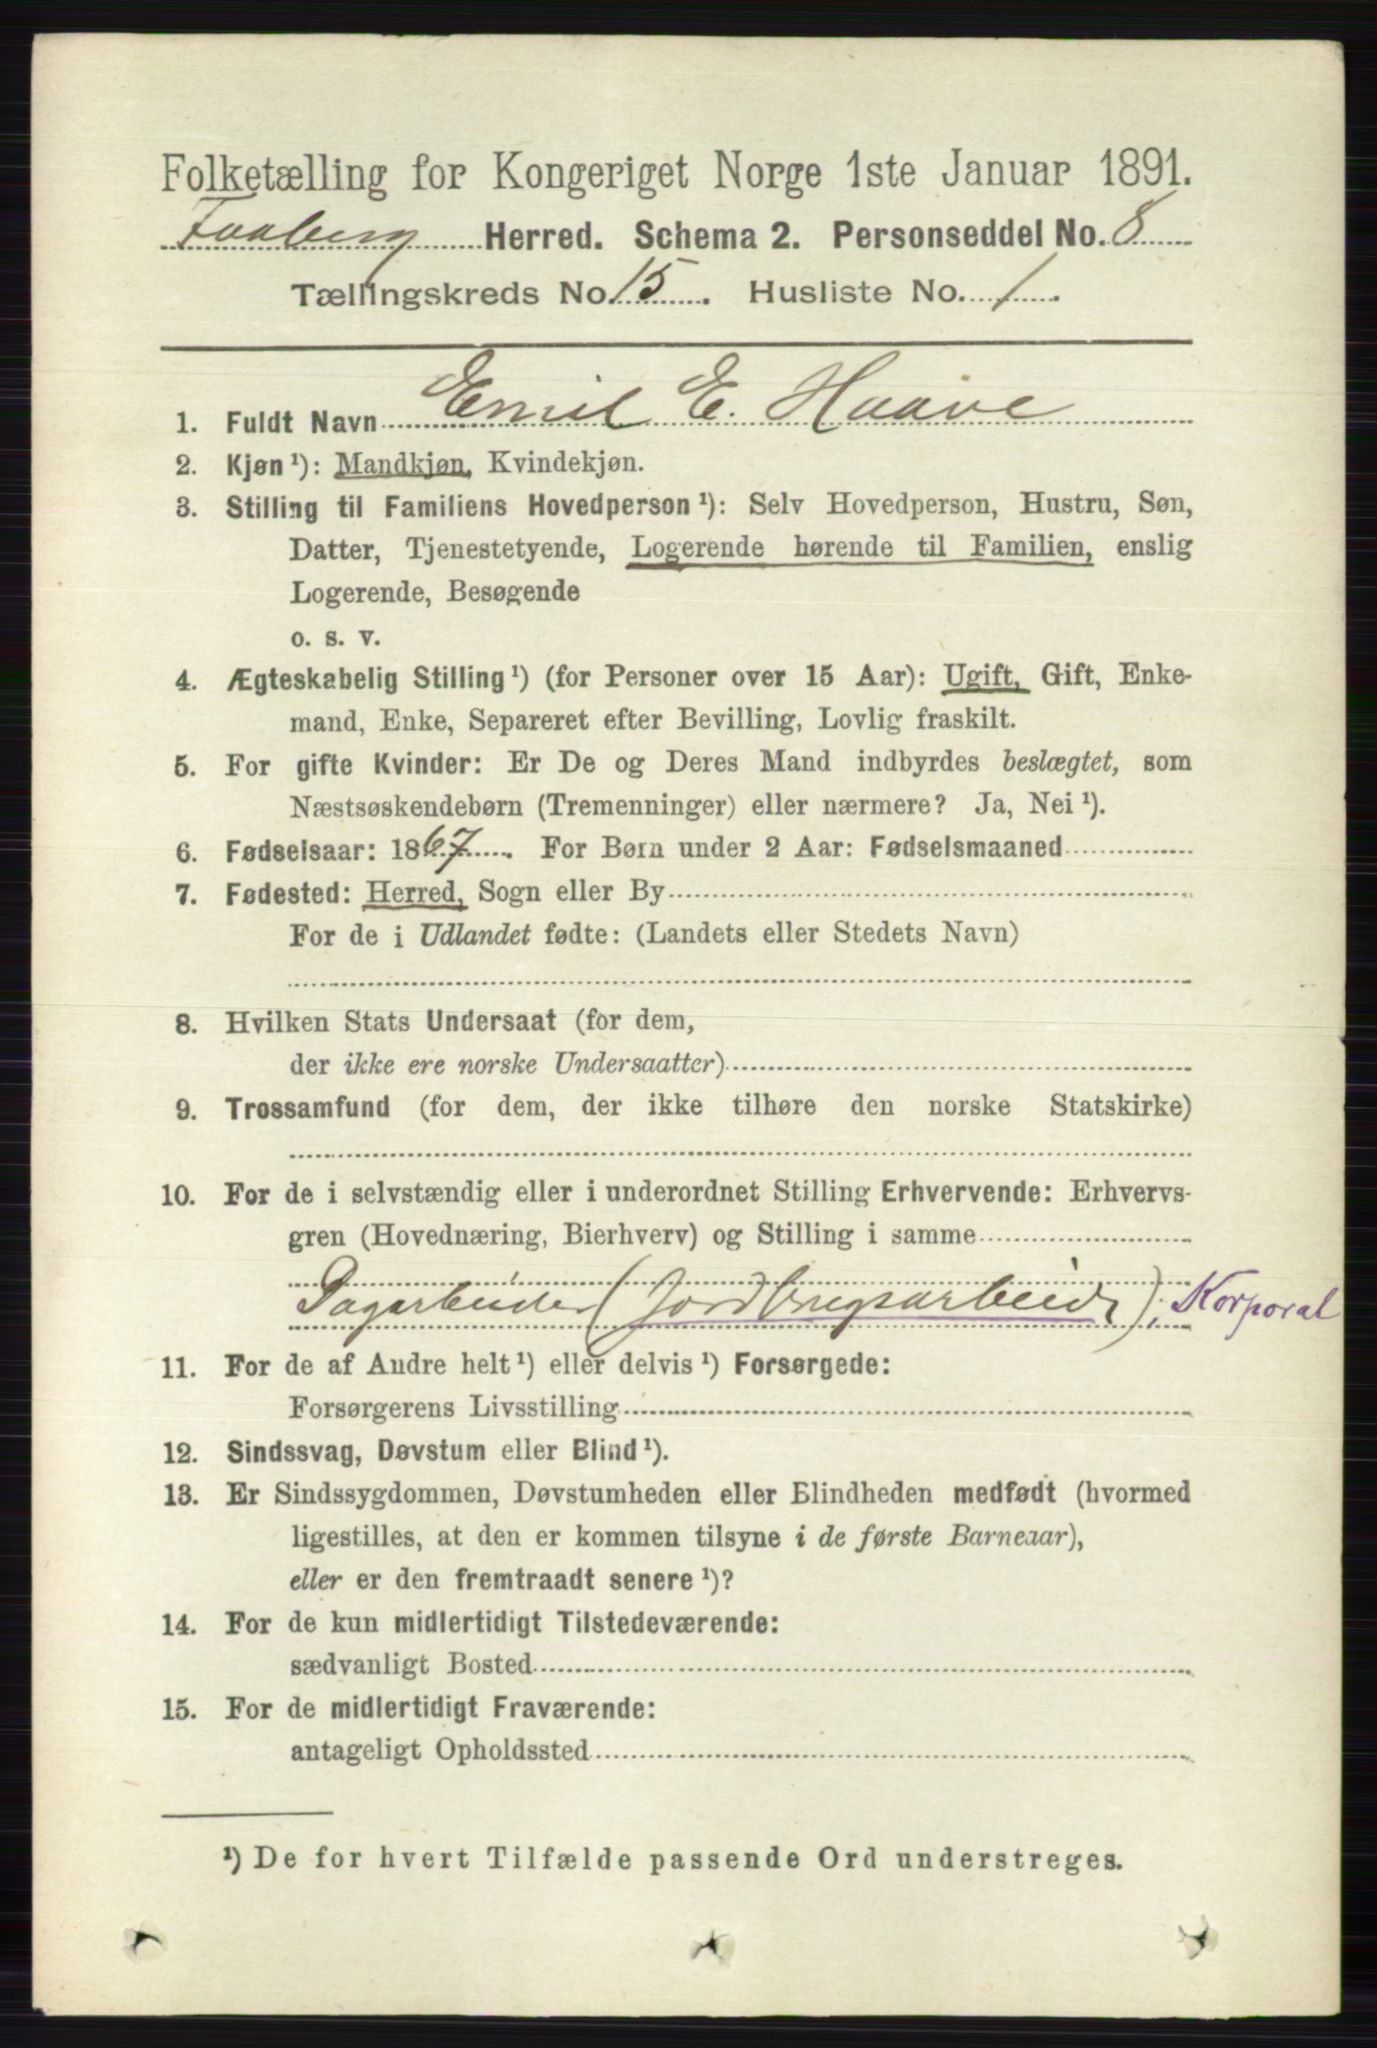 Folketælling for Kongeriget Norge 1ste Januar 1891.
Faaberg Herred. Schema 2. Personseddel No. 8
Tællingskreds No. 15. Husliste No. 1.
1. Fuldt Navn Emil E. Haave
2. Kjøn¹): Mandkjøn, Kvindekjøn.
3. Stilling til Familiens Hovedperson¹): Selv Hovedperson, Hustru, Søn,
Datter, Tjenestetyende, Logerende hørende til Familien, enslig
Logerende, Besøgende
o. s. v.
4. Ægteskabelig Stilling¹) (for Personer over 15 Aar): Ugift, Gift, Enke-
mand, Enke, Separeret efter Bevilling, Lovlig fraskilt.
5. For gifte Kvinder: Er De og Deres Mand indbyrdes beslægtet, som
Næstsøskendebørn (Tremenninger) eller nærmere? Ja, Nei¹).
6. Fødselsaar: 1867. For Børn under 2 Aar: Fødselsmaaned
7. Fødested: Herred, Sogn eller By
For de i Udlandet fødte: (Landets eller Stedets Navn)
8. Hvilken Stats Undersaat (for dem,
der ikke ere norske Undersaatter)
9. Trossamfund (for dem, der ikke tilhøre den norske Statskirke)
10. For de i selvstændig eller i underordnet Stilling Erhvervende: Erhvervs-
gren (Hovednæring, Bierhverv) og Stilling i samme
Dagarbeider (Jordbrugsarbeide); Korporal
11. For de af Andre helt¹) eller delvis¹) Forsørgede:
Forsørgerens Livsstilling
12. Sindssvag, Døvstum eller Blind¹).
13. Er Sindssygdommen, Døvstumheden eller Blindheden medfødt (hvormed
ligestilles, at den er kommen tilsyne i de første Barneaar),
eller er den fremtraadt senere¹)?
14. For de kun midlertidigt Tilstedeværende:
sædvanligt Bosted
15. For de midlertidigt Fraværende:
antageligt Opholdssted
¹) De for hvert Tilfælde passende Ord understreges.